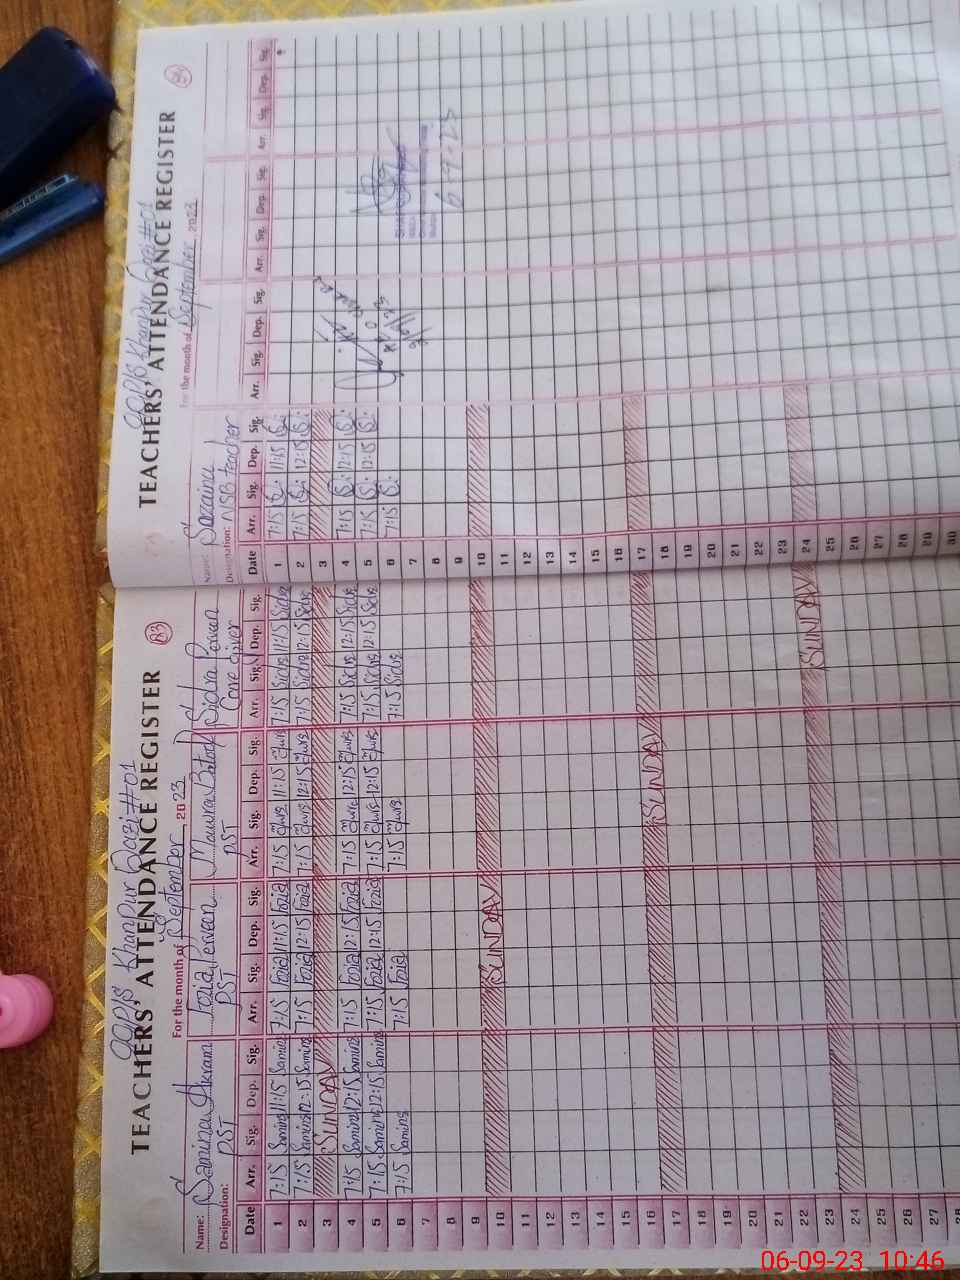 TEACHERS' ATTENDANCE REGISTER
For the month of September, 2023
Name: Samina Akram Fozia Perveen Batool Sidra Perveen
Designation: PST PST PST Care Giver
Date Arr. Sig. Dep. Sig. Arr. Sig. Dep. Sig. Arr. Sig. Dep. Sig. Arr. Sig. Dep. Sig.
1 7:15 Samina 11:15 Samina 7:15 Fozia 11:15 Fozia 7:15 11:15 7:15 Sidra 11:15 Sidra
2 7:15 Samina 12:15 Samina 7:15 Fozia 12:15 Fozia 7:15 12:15 7:15 Sidra 12:15 Sidra
3 SUNDAY
4 7:15 Samina 12:15 Samina 7:15 Fozia 12:15 Fozia 7:15 12:15 7:15 Sidra 12:15 Sidra
5 7:15 Samina 12:15 Samina 7:15 Fozia 12:15 Fozia 7:15 12:15 7:15 Sidra 12:15 Sidra
6 7:15 Samina 7:15 Fozia 7:15 7:15 Sidra
7
8
9
10 SUNDAY
11
12
13
14
15
16
17 SUNDAY
18
19
20
21
22
23
24 SUNDAY
25
26
27
28
TEACHERS' ATTENDANCE REGISTER
For the month of September, 2023
Name:
Designation: NSB teacher
Date Arr. Sig. Dep. Sig. Arr. Sig. Dep. Sig. Arr. Sig. Dep. Sig. Arr. Sig. Dep. Sig.
1 7:15 S. 11:15 S.
2 7:15 S. 12:15 S.
3
4 7:15 S. 12:15 S.
5 7:15 S. 12:15 S.
6 7:15 S.
7
8
9
10
11
12
13
14
15
16
17
18
19
20
21
22
23
24
25
26
27
28
29
30
6-9-23
06-09-23 10:46